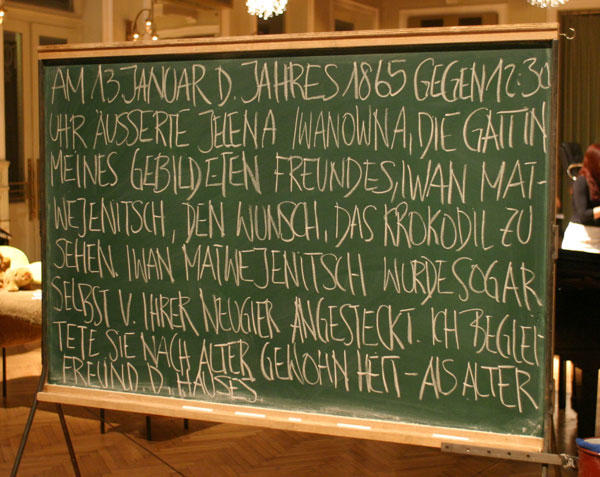 AM 13 JANUAR D. JAHRES 1865 GEGEN 12:30
UHR ÄUSSERTE JELENA IWANOWNA, DIE GATTIN
MEINES GEBILDETEN FREUNDES, IWAN MAT-
WEJENITSCH, DEN WUNSCH, DAS KROKODIL ZU
SEHEN. IWAN MATWEJENITSCH WURDE SOGAR
SELBST V. IHRER NEUGIER ANGESTECKT. ICH BEGLEI-
TETE SIE NACH ALTER GEWOHNHEIT – ALS ALTER
FREUND. D. HAUSES.